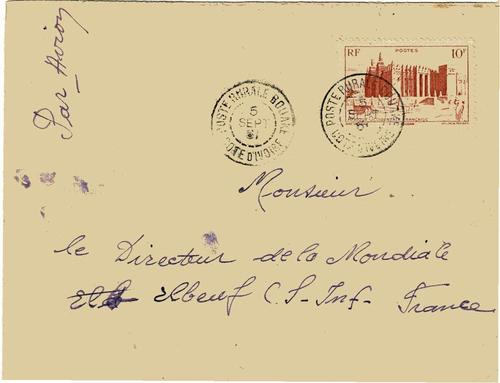 Par Avion
RF POSTES 10F
POSTE RURALE BOUAKE
5
SEPT
COTE D'IVOIRE
POSTE RURALE
Monsieur
le Directeur de la Mondiale
Elbeuf C.S-Inf- France